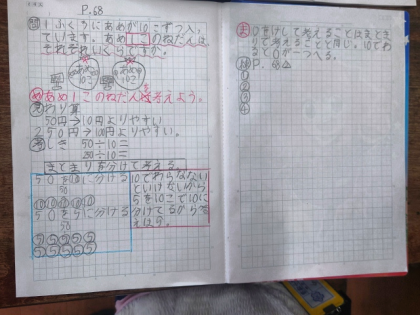 P.68
問 1ふくろにあめが10こずつ入っ
ています。あめ1このねだんは、
それぞれいくらですか。
10こ
10こ
め あめ1このねだんを考えよう。
わり算
50円→10円よりやすい
250円→100円よりやすい。
しき 50÷10=
250÷10=
まとまりを分けて考える。
50を に分ける
50
⑩⑩⑩⑩⑩
50を5に分ける
50
⑤⑤⑤⑤⑤
⑤⑤⑤⑤⑤
10でわらない
といけないから
5を10こで10に
分けてるから答
えは5。
ま 0を けして考えることはまとま
りで考えることと同じ。10でわ
ると0が一つへる。
P.
①
②
③
④